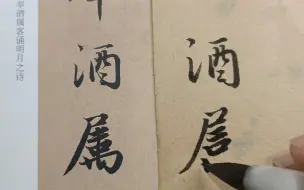 举酒属客诵明月之诗
酒属
酒